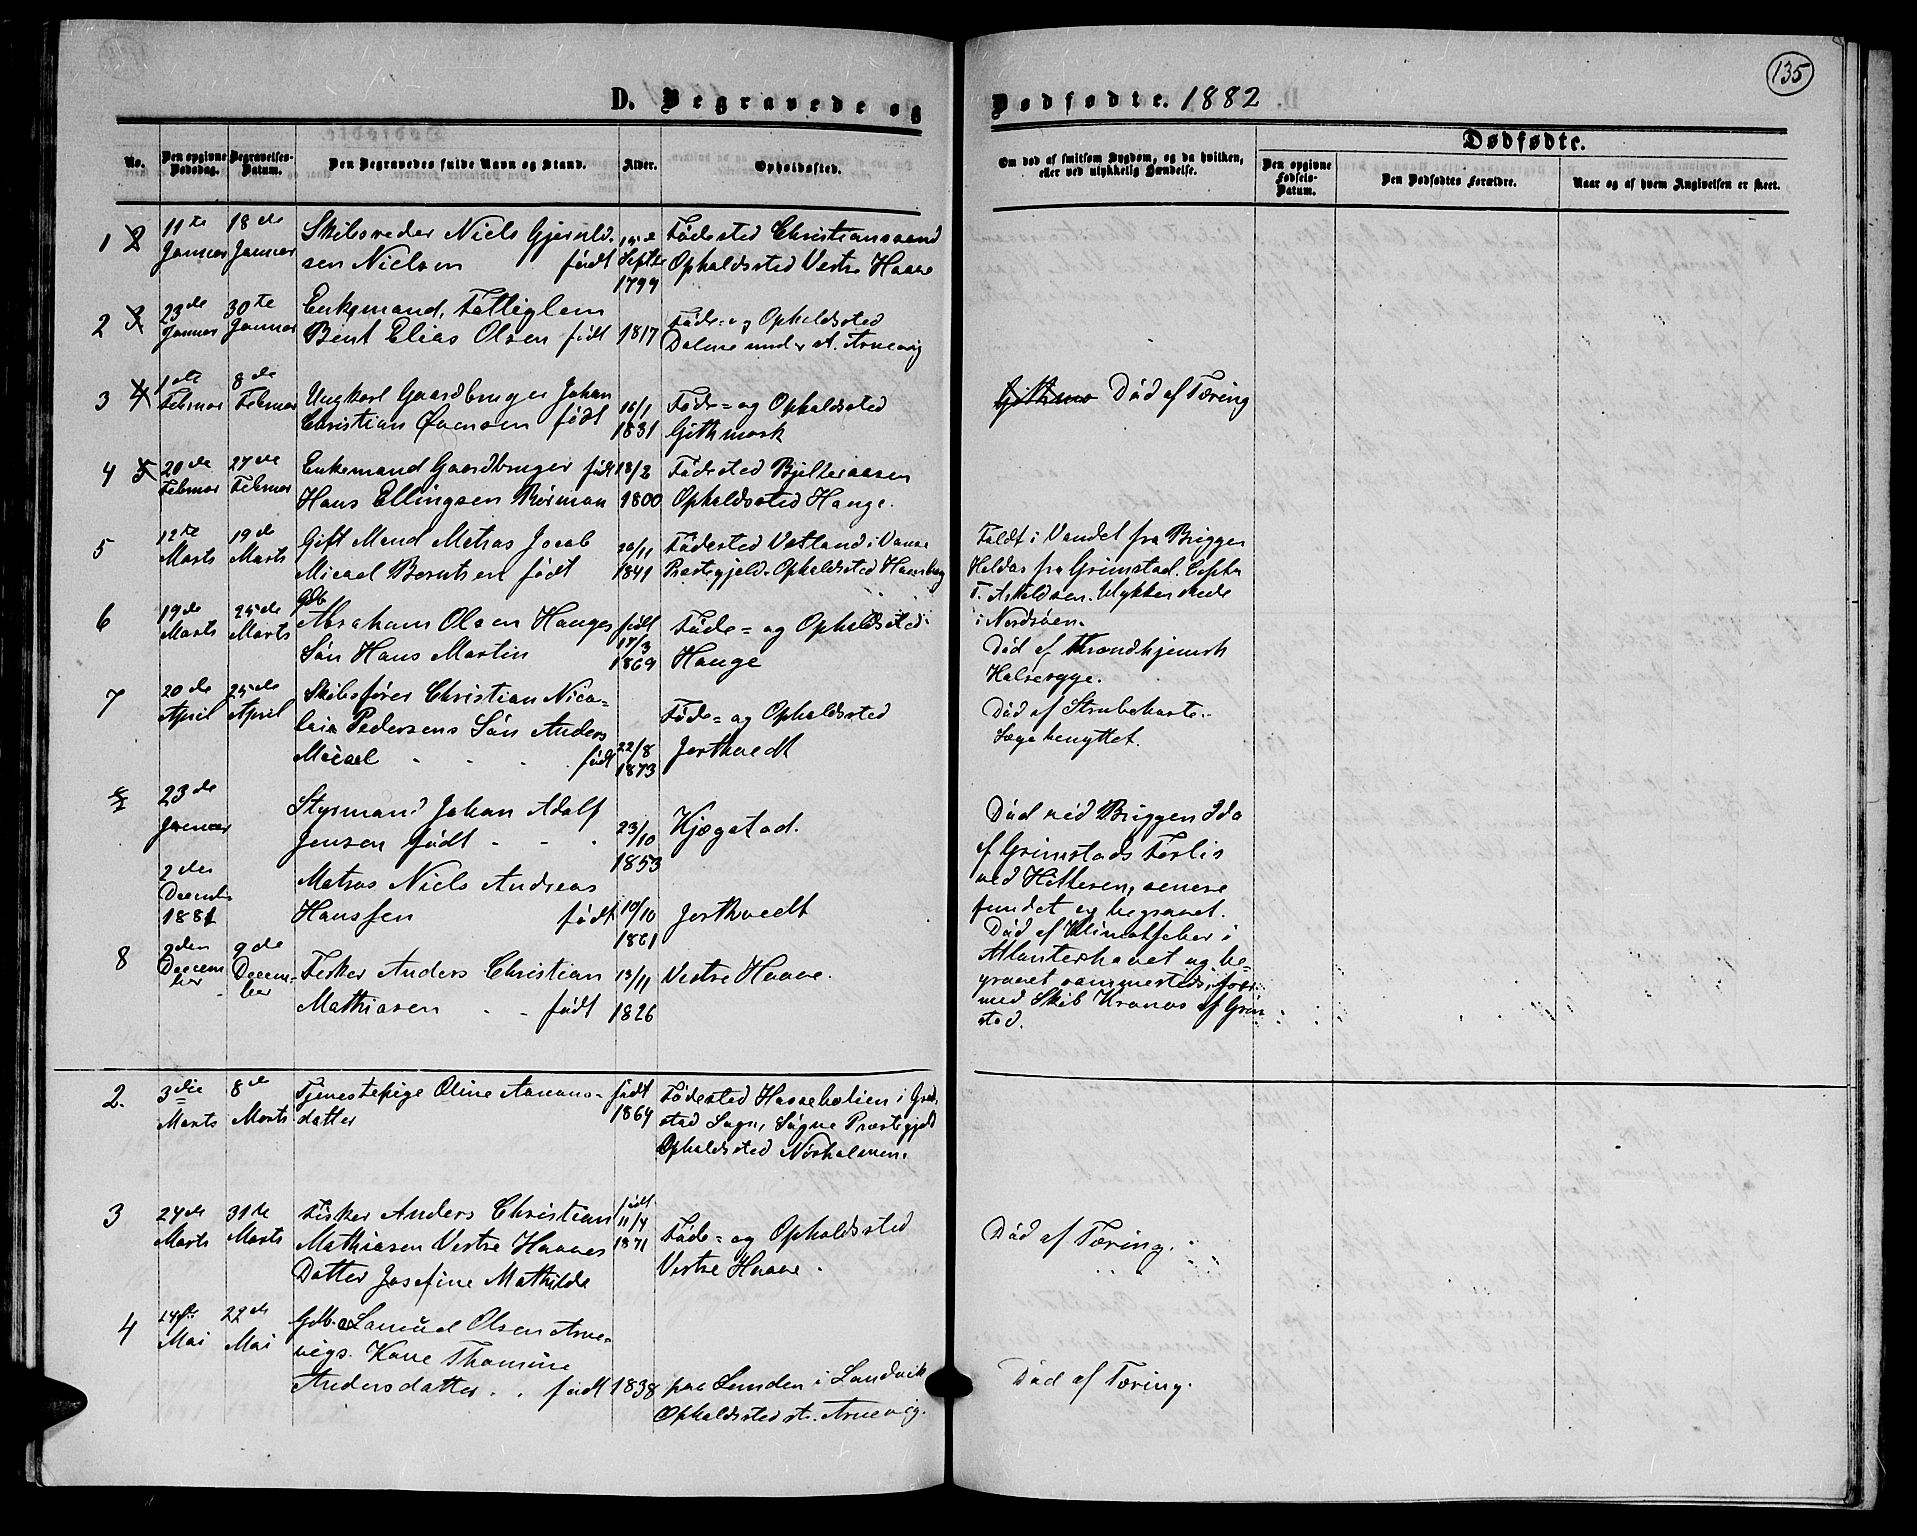 135
D. Begravede og Dødfødte. 1882
Dødfødte.
No.
Den opgivne Dødsdag.
Begravelses-Datum.
Den Begravedes fulde Navn og Stand.
Alder.
Opholdssted.
Om død af smitsom Sygdom, og da hvilken, eller ved ulykkelig Hændelse.
Den opgivne Fødsels-Datum.
Den Dødfødtes Forældre.
Naar og af hvem Angivelsen er skeet.
1 2 11te 18de Skibsreder Niels Gjeruld- Fødested Christianssand
Januar Januar sen Nielsen født Septbr 1799 Opholdssted Vestre Haave
2 3 23de 30te Enkemand, Fattiglem
Januar Januar Bent Elias Olsen født 1817 Føde- og Opholdssted
under st. Arnevig
3 4 1de 8de Ungkarl Gaardbruger Johan
Februar Februar Christian født 16/1 1831 Føde- og Opholdssted
Githmark
Død af Tæring
4 5 20de 27de Enkemand Gaardbruger født 18/2 Fødested Bjelteraasen
Februar Februar Hans Ellingsen 1800 Opholdssted Hauge.
5 12te 19de Gift Mand Matros Jacob 20/11 Fødested Vatland i Vanse
Marts Marts Micael Berntsen født 1841 Præstegjeld. Opholdssted
Faldt i Vandet fra Briggen
Heldas fra Grimstad. Captn
T. Askildsen. Ulykken skede
i Nordsøen.
6 19de 25de Gdb. Abraham Olsen Hauges født Føde- og Opholdssted
Marts Marts Søn Hans Martin 17/3 1869 Hauge
Død af
Halssyge.
7 20de 25de Skibsfører Christian Nico-
April April laia Pedersens Søn Anders Føde- og Opholdssted
Micael - - - født 22/8 1873 Jortvedt
Død af Strubehoste.
Læge benyttet.
23de Styrmand Johan Adolf
Januar Jensen født - - - 23/10 1853 Kjægstad.
Død ved Briggen Ida
af Grimstads Forlis
ved Hitteren, senere
fundet og begravet.
2den Matros Niels Andreas
Decemb. 1881 Hanssen født 10/10 1861 Jortkvedt
Død af Klimatfeber i
Atlanterhavet og be-
gravet sammesteds, foer
med Skib Kronos af Grim-
stad.
8 2den 9de Fisker Anders Christian 13/11 Vestre Haave.
Decem- ber Decem- ber Mathiasen - - født 1826
2. 3die 8de Tjenestepige Oline Aanons- født Fødested i
Marts Marts datter 1864 Sogn, Søgne Præstegjeld
Opholdssted Nørholmen.
3 24de 31te Fisker Anders Christian født 11/4
Marts Marts Mathiasen Vestre Haaves 1871 Føde- og Opholdssted
Datter Josefine Mathilde Vestre Haave.
Død af Tæring.
4 14de 22de Gdb. Samuel Olsen Arne-
Mai Mai vigs. Kone Thomine
Andersdatter. . født 1838 paa Lunden i Landvik
Opholdssted st. Arnevig.
Død af Tæring.